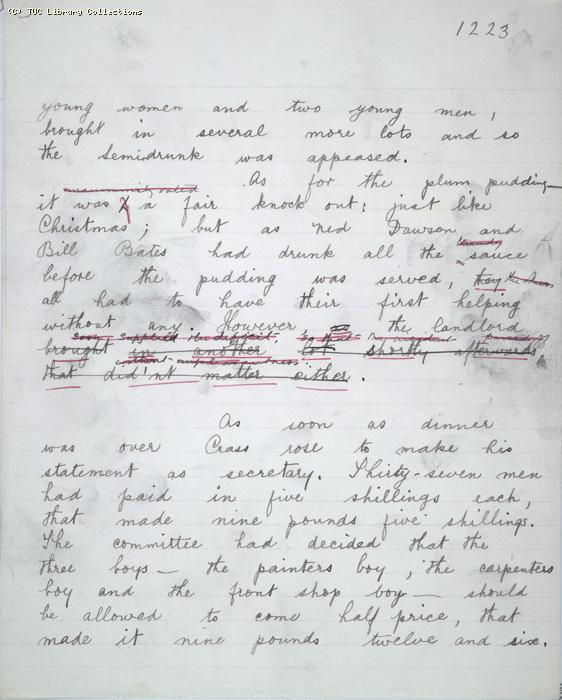 (C) TUC Library Collections
1223
young women and two young men,
brought in several more lots and so
the Semidrunk was appeased.
As for the plum pudding—
unanimously voted
it was a fair knock out; just like
Christmas; but as Ned Dawson and
Bill Bates had drunk all the sauce
before the pudding was served, they
all had to have their first helping
without any. However, as the landlord
soon supplied the deficit, so that
brought in another lot shortly afterwards
that did'nt matter either.
As soon as dinner
was over Crass rose to make his
statement as secretary. Thirty-seven men
had paid in five shillings each,
that made nine pounds five shillings.
The committee had decided that the
three boys — the painters boy, the carpenters
boy and the front shop boy — should
be allowed to come half price, that
made it nine pounds twelve and six.